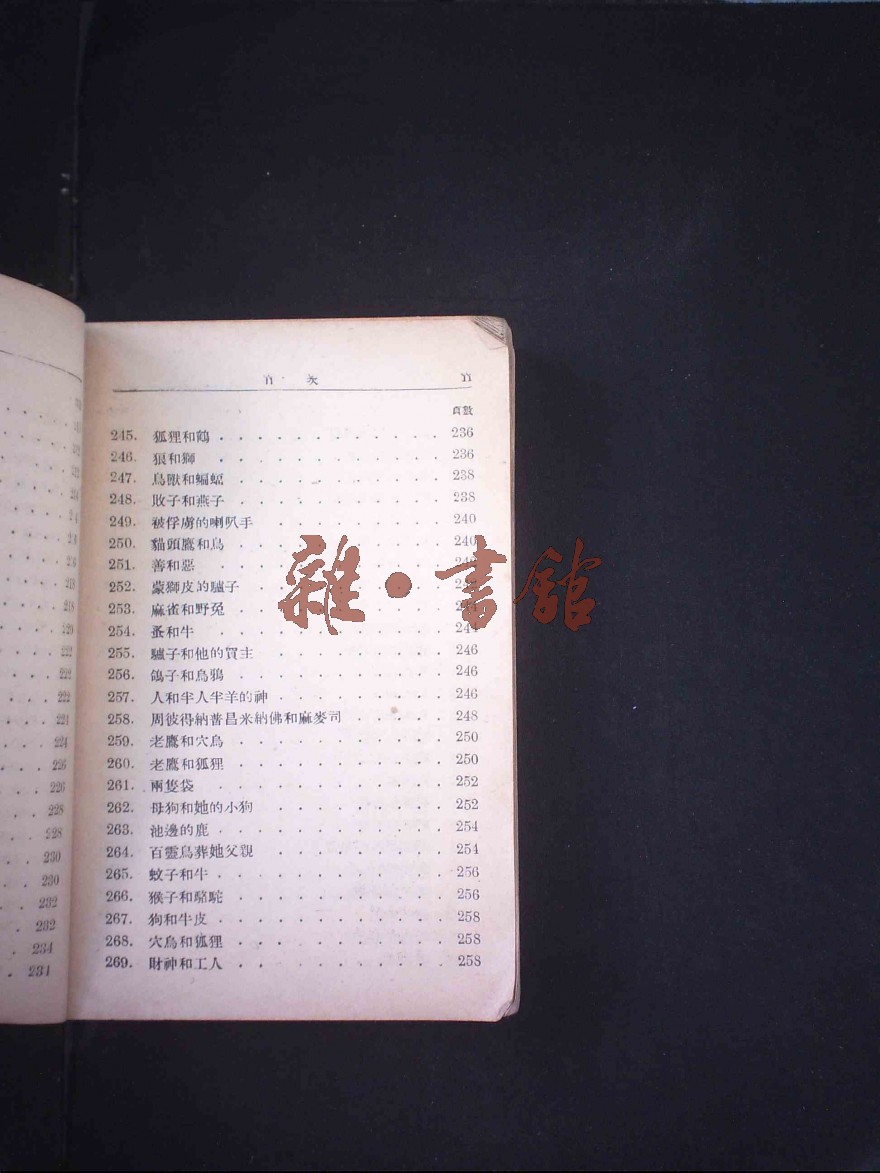 目 次
頁數
245. 狐狸和鶴 . . . . . . . . . . . . 236
246. 狼和獅 . . . . . . . . . . . . 236
247. 鳥獸和蝙蝠 . . . . . . . . . . . 238
248. 敗子和燕子 . . . . . . . . . . . 238
249. 被俘虜的喇叭手 . . . . . . . . . 240
250. 貓頭鷹和鳥 . . . . . . . . . . . 240
251. 善和惡
252. 蒙獅皮的驢子
253. 麻雀和野兔
254. 蚤和牛 . . . . . . . . . . . . 244
255. 驢子和他的買主 . . . . . . . . . 246
256. 鴿子和烏鴉 . . . . . . . . . . . 246
257. 人和半人半羊的神 . . . . . . . . . 246
258. 周彼得納普昌米納佛和麻麥司 . . . . . 248
259. 老鷹和穴鳥 . . . . . . . . . . . 250
260. 老鷹和狐狸 . . . . . . . . . . . 250
261. 兩隻袋 . . . . . . . . . . . . 252
262. 母狗和她的小狗 . . . . . . . . . 252
263. 池邊的鹿 . . . . . . . . . . . . 254
264. 百靈鳥葬她父親 . . . . . . . . . 254
265. 蚊子和牛 . . . . . . . . . . . . 256
266. 猴子和駱駝 . . . . . . . . . . . 256
267. 狗和牛皮 . . . . . . . . . . . . 258
268. 穴鳥和狐狸 . . . . . . . . . . . 258
269. 財神和工人 . . . . . . . . . . . 258
雜·書館
218
220
222
222
222
224
224
226
226
228
228
230
230
232
232
234
234